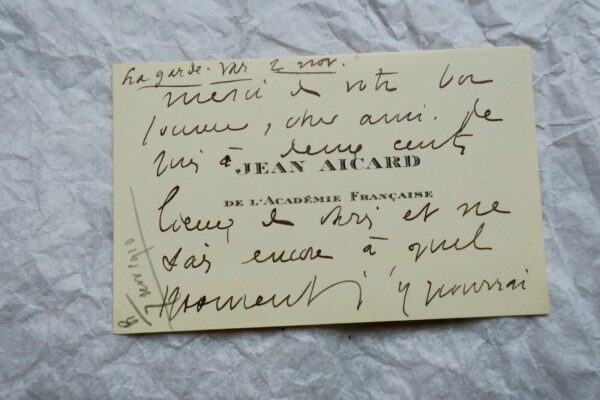 La garde. Var 2 nov.
Merci de votre bon
, cher ami. Je
suis à deux cents
JEAN AICARD
DE L'ACADÉMIE FRANÇAISE
lieues de Paris et ne
sais encore à quel
moment j'y pourrai
nov 1910